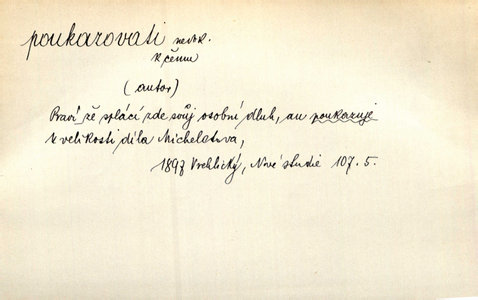 poukazovati nedok.
k čemu
(autor)
Praví že splácí zde svůj osobní dluh, an poukazuje
k velikosti díla Micheletova,
1897 Vrchlický, Nové studie 107. 5.